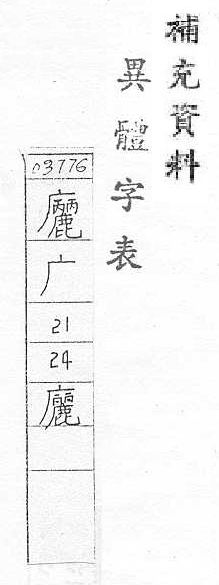 補充資料
異體字表
03776
廲
广
21
24
廲